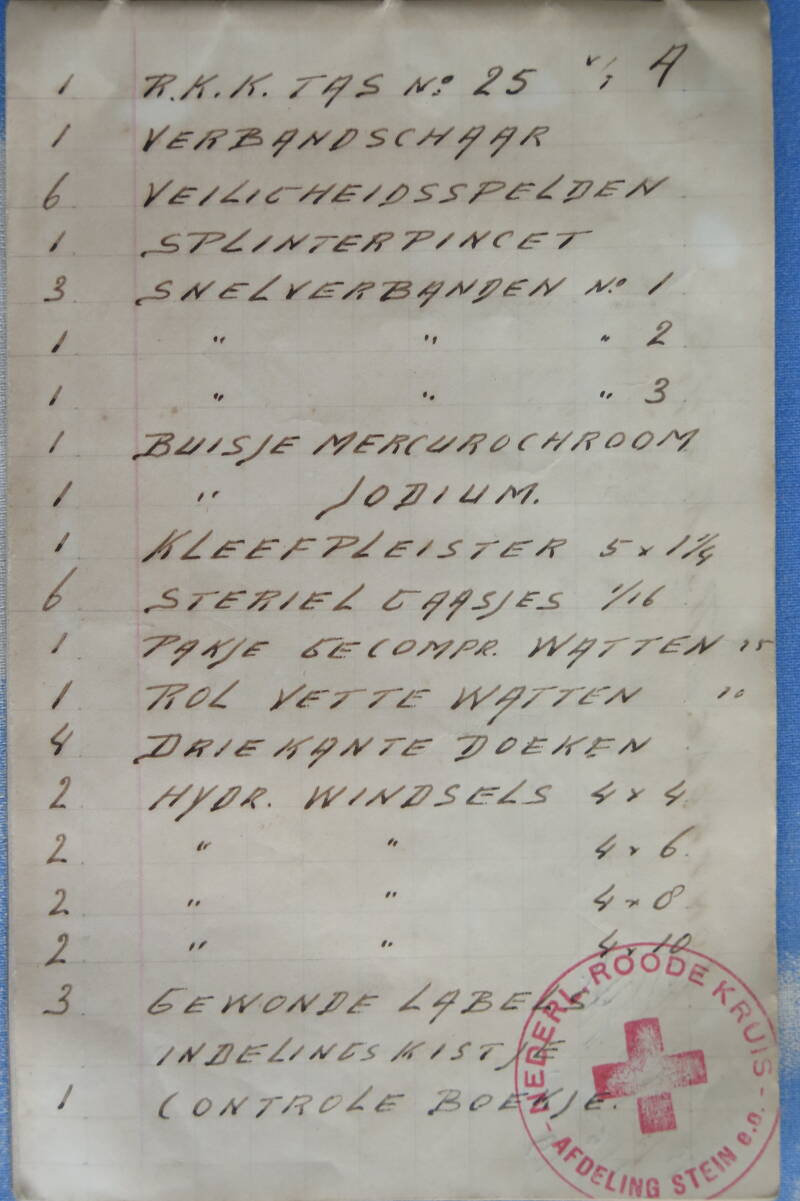 1 R.K.K. TAS No. 25 A
1 VERBANDSCHAAR
6 VEILIGHEIDSSPELDEN
1 SPLINTERPINCET
3 SNELVERBANDEN No. 1
1 " " " 2
1 " " " 3
1 BUISJE MERCUROCHROOM
1 " JODIUM.
1 KLEEFPLEISTER 5 x 1¼
6 STERIEL GAASJES 1/16
1 PAKJE GECOMPR. WATTEN
1 ROL VETTE WATTEN
4 DRIEKANTE DOEKEN
2 HYDR. WINDSELS 4 x 4
2 " " 4 x 6
2 " " 4 x 8
2 " " 4 x 10
3 GEWONDE LABELS
INDELINGSKISTJE
1 CONTROLE BOEKJE.
NEDERL. ROODE KRUIS
- AFDELING STEIN e.o. -